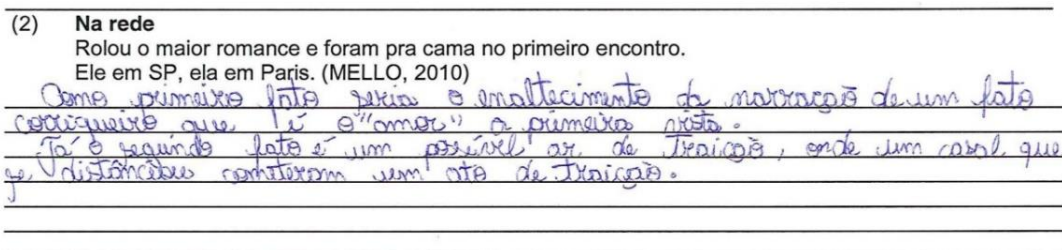 (2) Na rede
Rolou o maior romance e foram pra cama no primeiro encontro.
Ele em SP, ela em Paris. (MELLO, 2010)
Como primeiro fato seria o enaltecimento da narração de um fato
corriqueiro que é o "amor" a primeira vista.
Já o segundo fato é um possível ar de traição, onde um casal que
se distânciou cometeram um ato de traição.